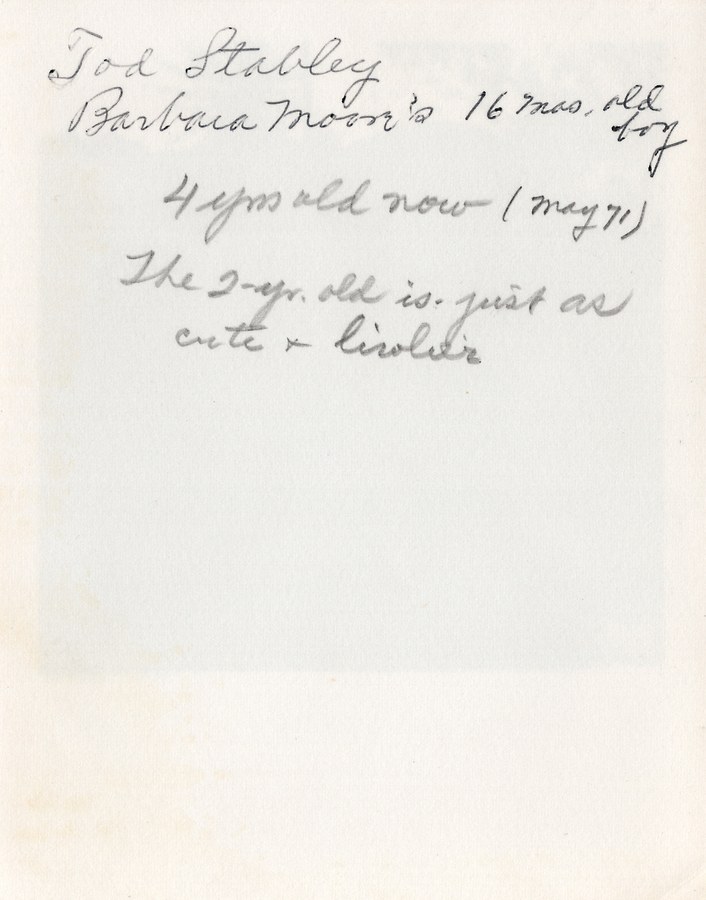 Tod Stabley
Barbara Moore's 16 mos. old
boy
4 yrs old now (May 71)
The 2-yr. old is just as
cute + livelier